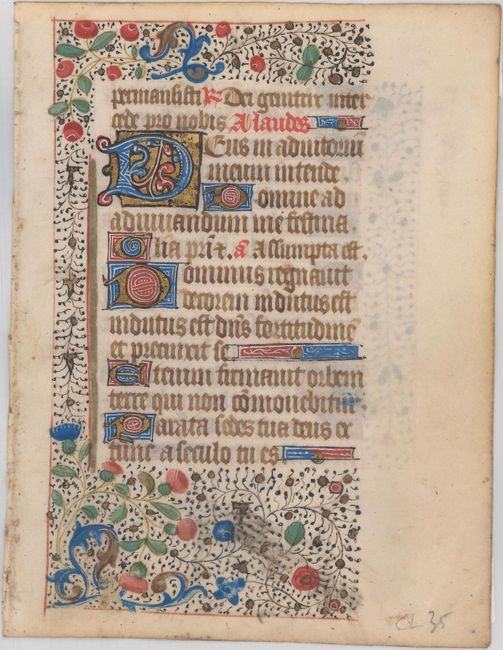 permansisti R Dei genitrix inter
cede pro nobis A laudes
Deus in adiutoriu
meum intende.
Domine ad
adiuuandum me festina.
Glia pri &. a Assumpta est.
Dominus regnauit
decorem indutus est
indutus est dns fortitudine
et precinxit se
Etenim firmauit orbem
terre qui non comouebitur
Parata sedes tua deus ex
tunc a seculo tu es.
CL 35